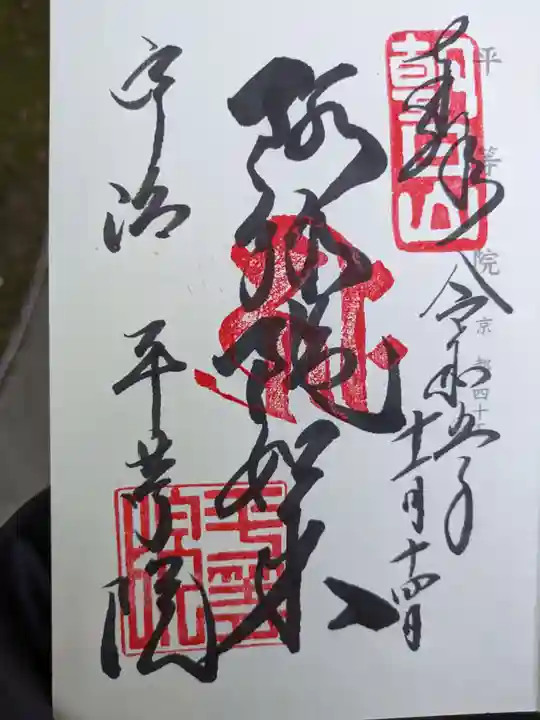 平等院 京都四十
奉拝
朝日山
令和五年
十一月十四日
阿弥陀如来
宇治 平等院
平等院